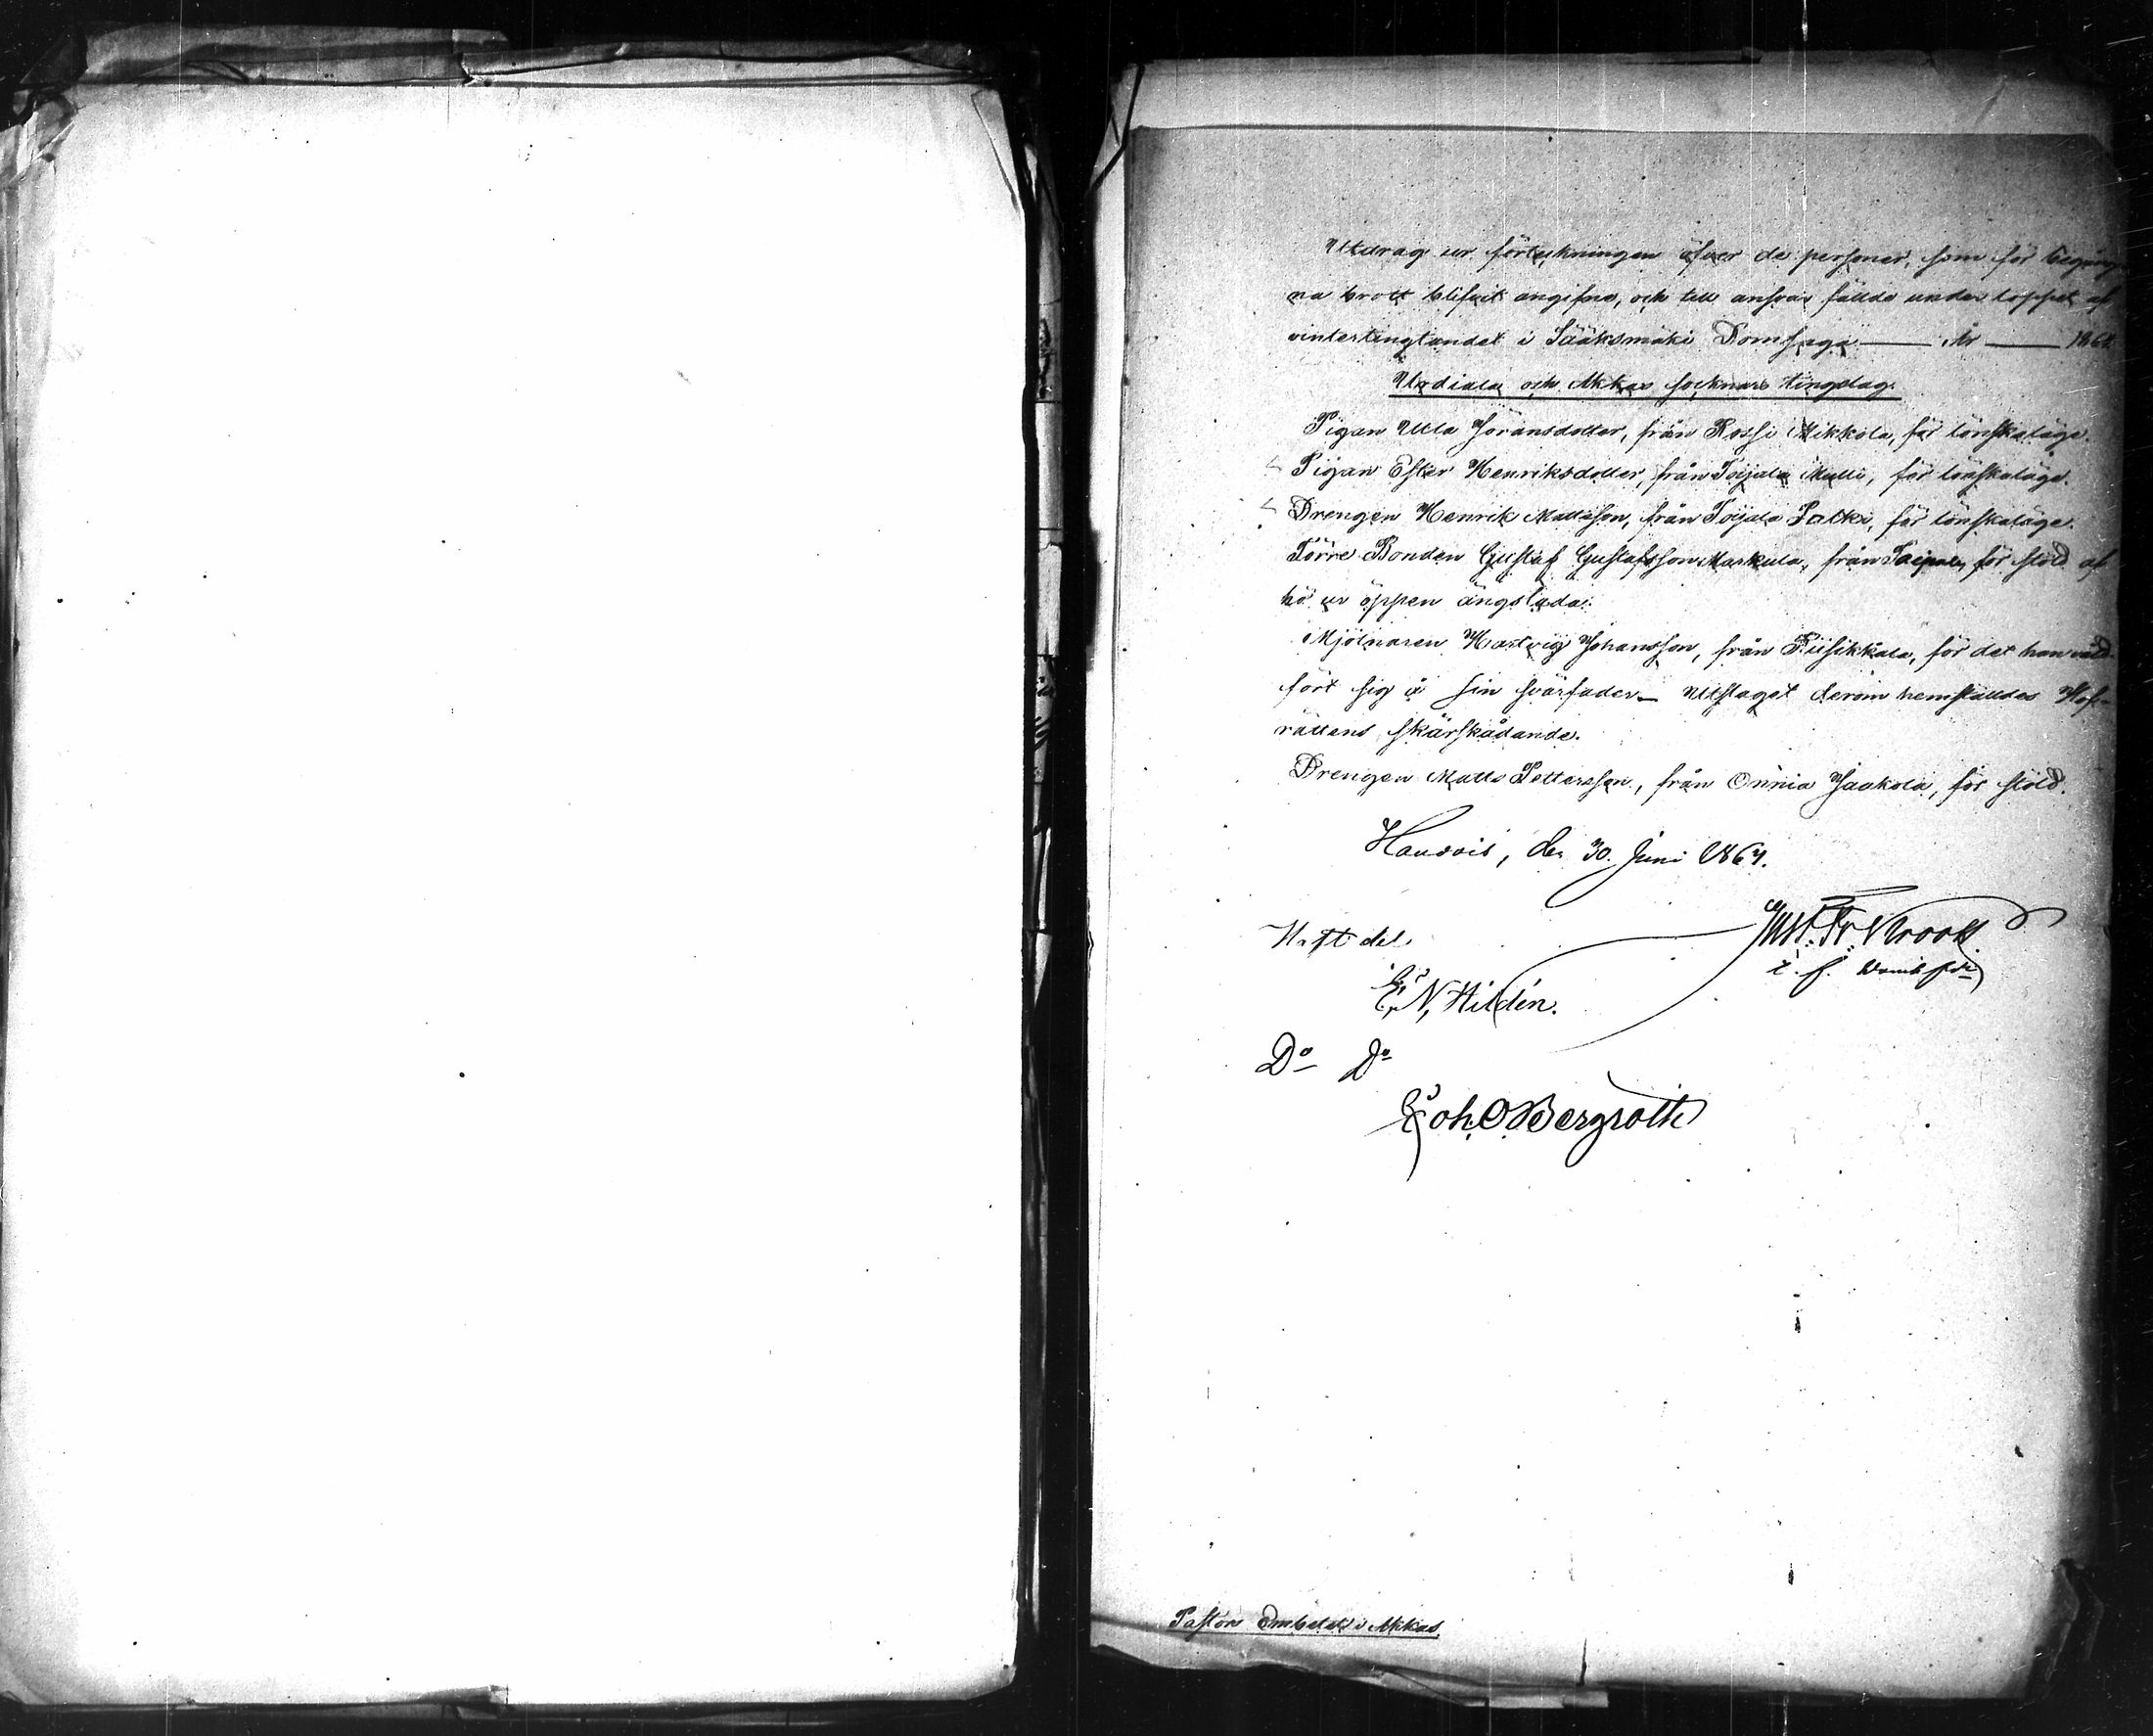 Utdrag ur förteckningen öfver de personer, som för begång-
na brott blifvit angifne, och till ansvar fällde under loppet af
vintertingtundet i Sääksmäki Domsaga — År — 1864.
Urdiala och Akkas socknars tingslag.
Pigan Ulla Göransdotter, från Kossi Mikkola, för lönskaläge.
Pigan Ester Henriksdotter, från Toijala Matti, för lönskaläge.
Drengen Henrik Mattsson, från Toijala, för lönskaläge.
Förre Bonden Gustaf Gustafsson Markula, från för stöld af
hö ur öppen ängslada.
Mjölnaren Hartvig Johansson, från Riisikkala, för det han våld-
fört sig å sin svärfader — Utslaget derom hemställdes Hof-
rättens skärskådande.
Drengen Matts Pettersson, från Onnia Jaakola, för stöld.
den 30. Juni 1864.
Gust. Fr. Krook
t. f.
E. N. Hildén.
Do Do
Joh. O Bergroth
Pastors Embetet i Akkas